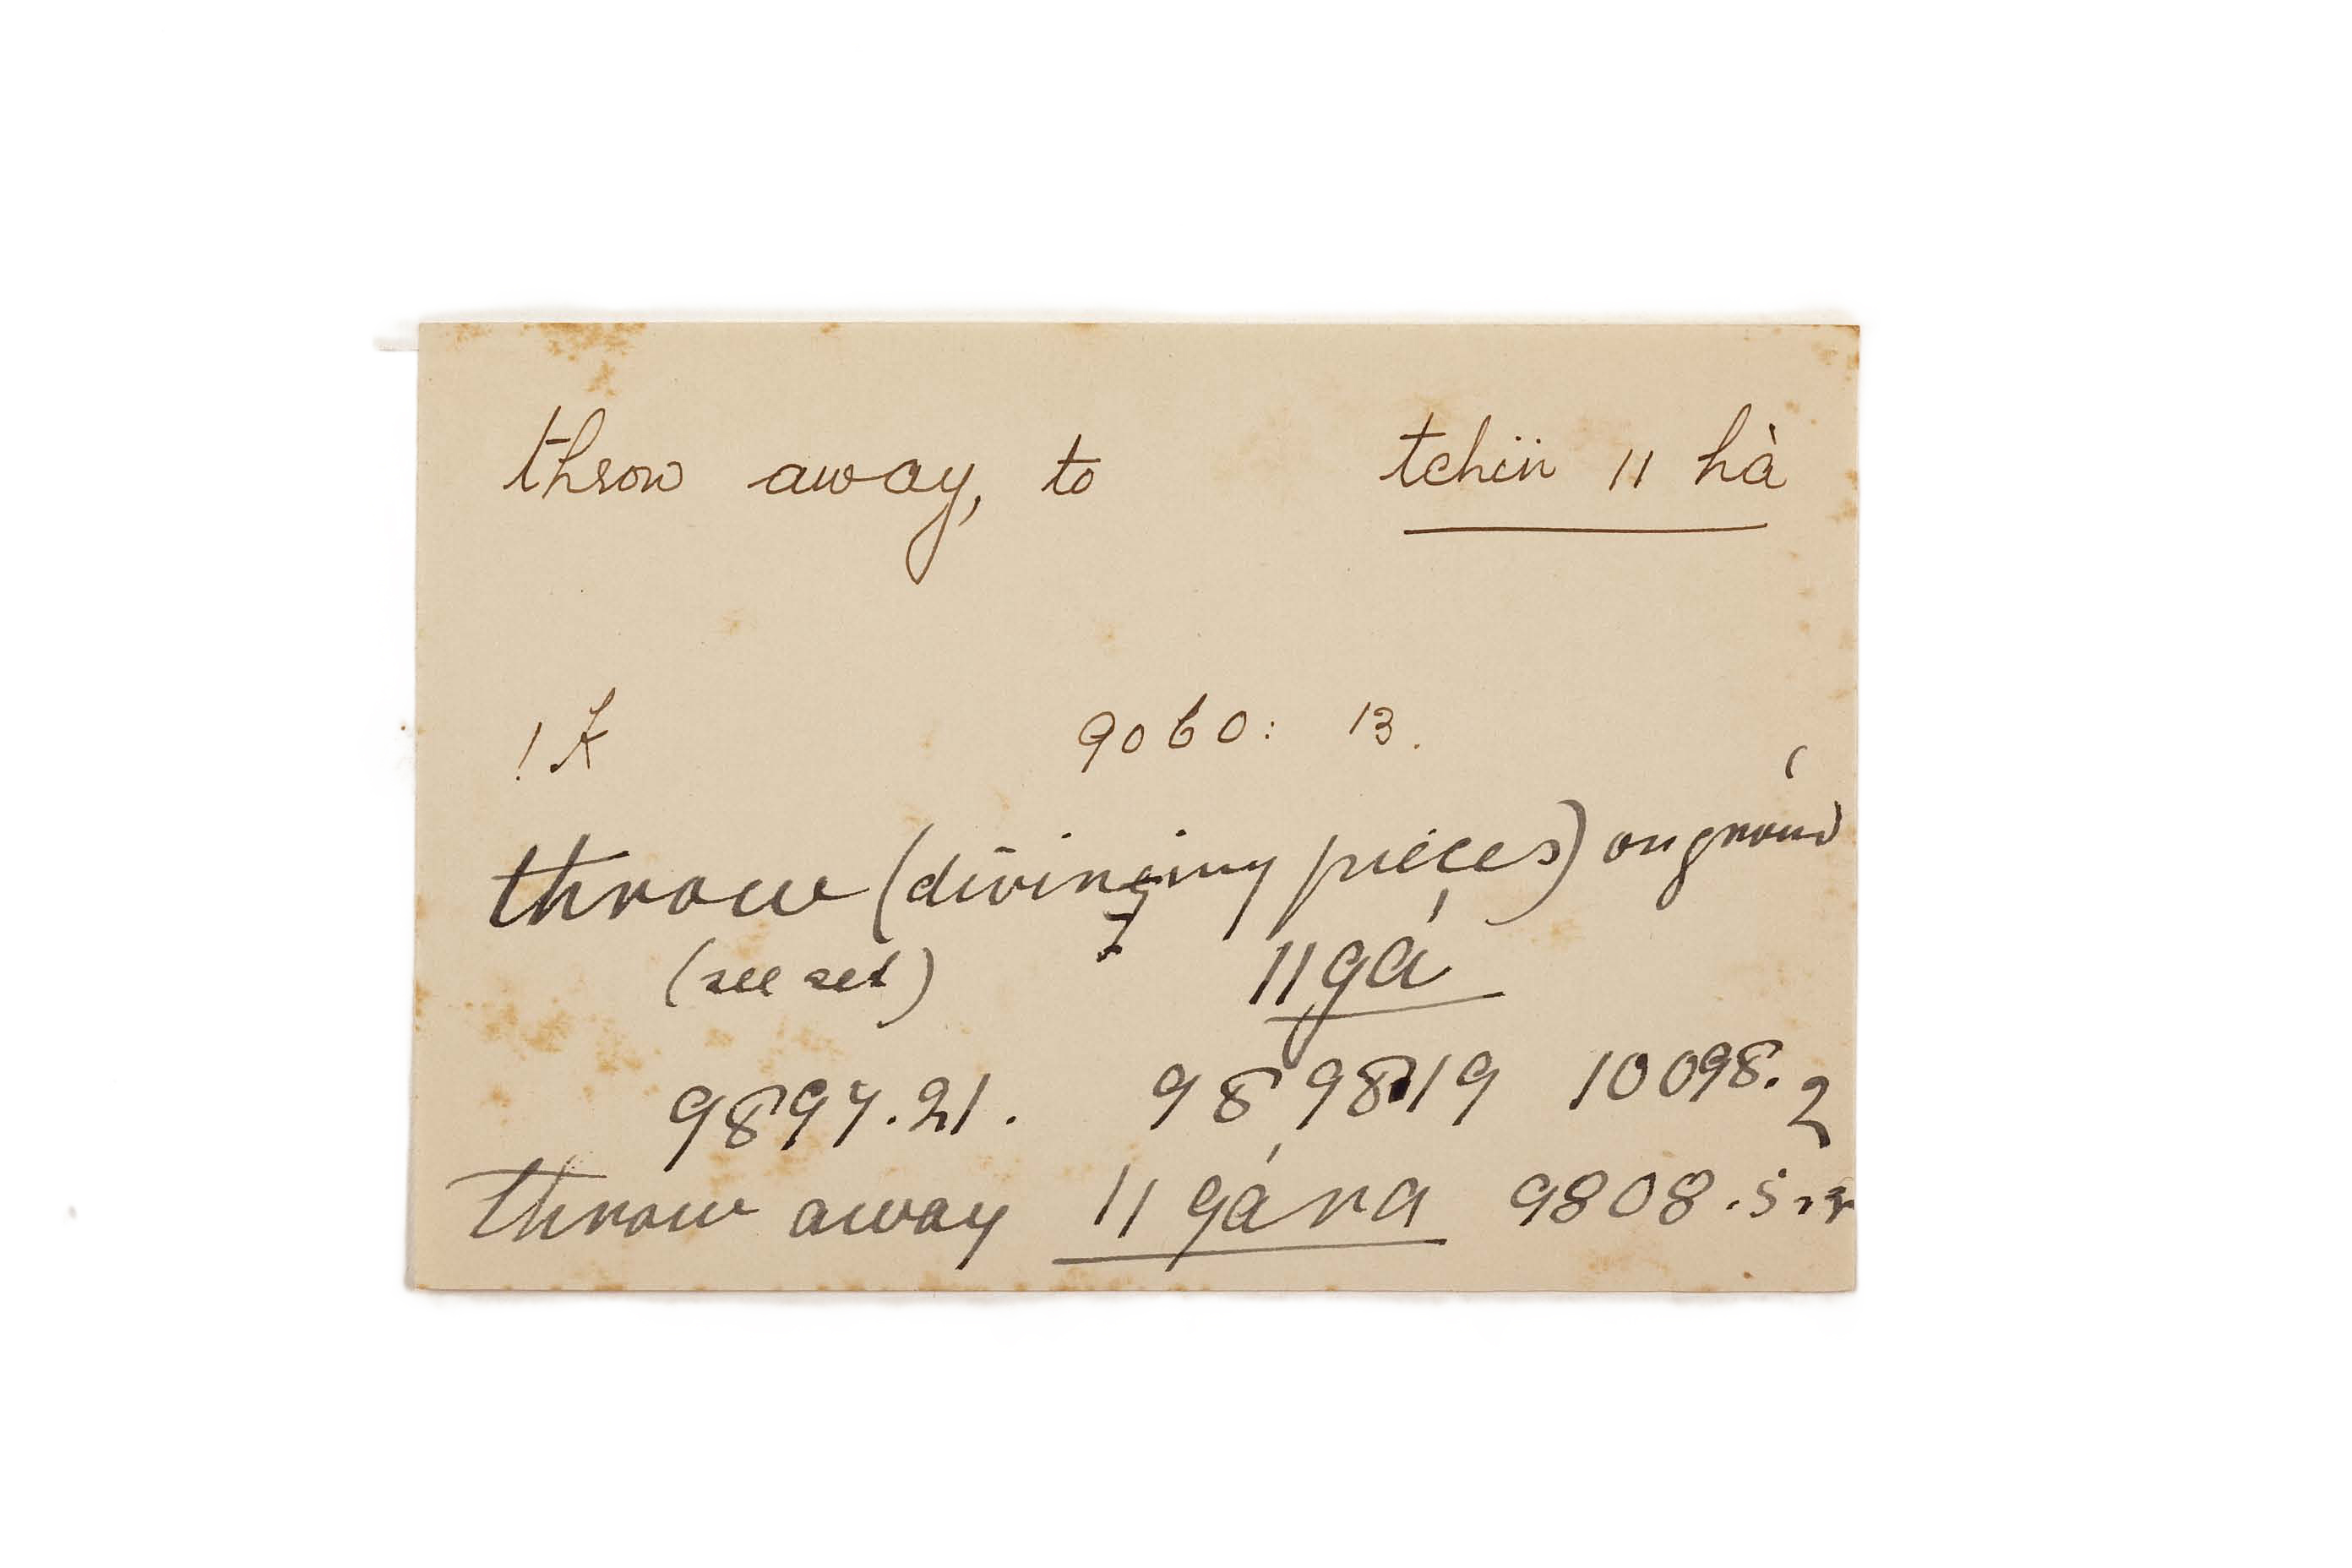 throw away, to tchïï || hà
!k 9060: 13.
throw (divining pieces) on ground
(see set) ||gá
9897.21. 9898.19 10098.2
throw away ||gána 9808.5.